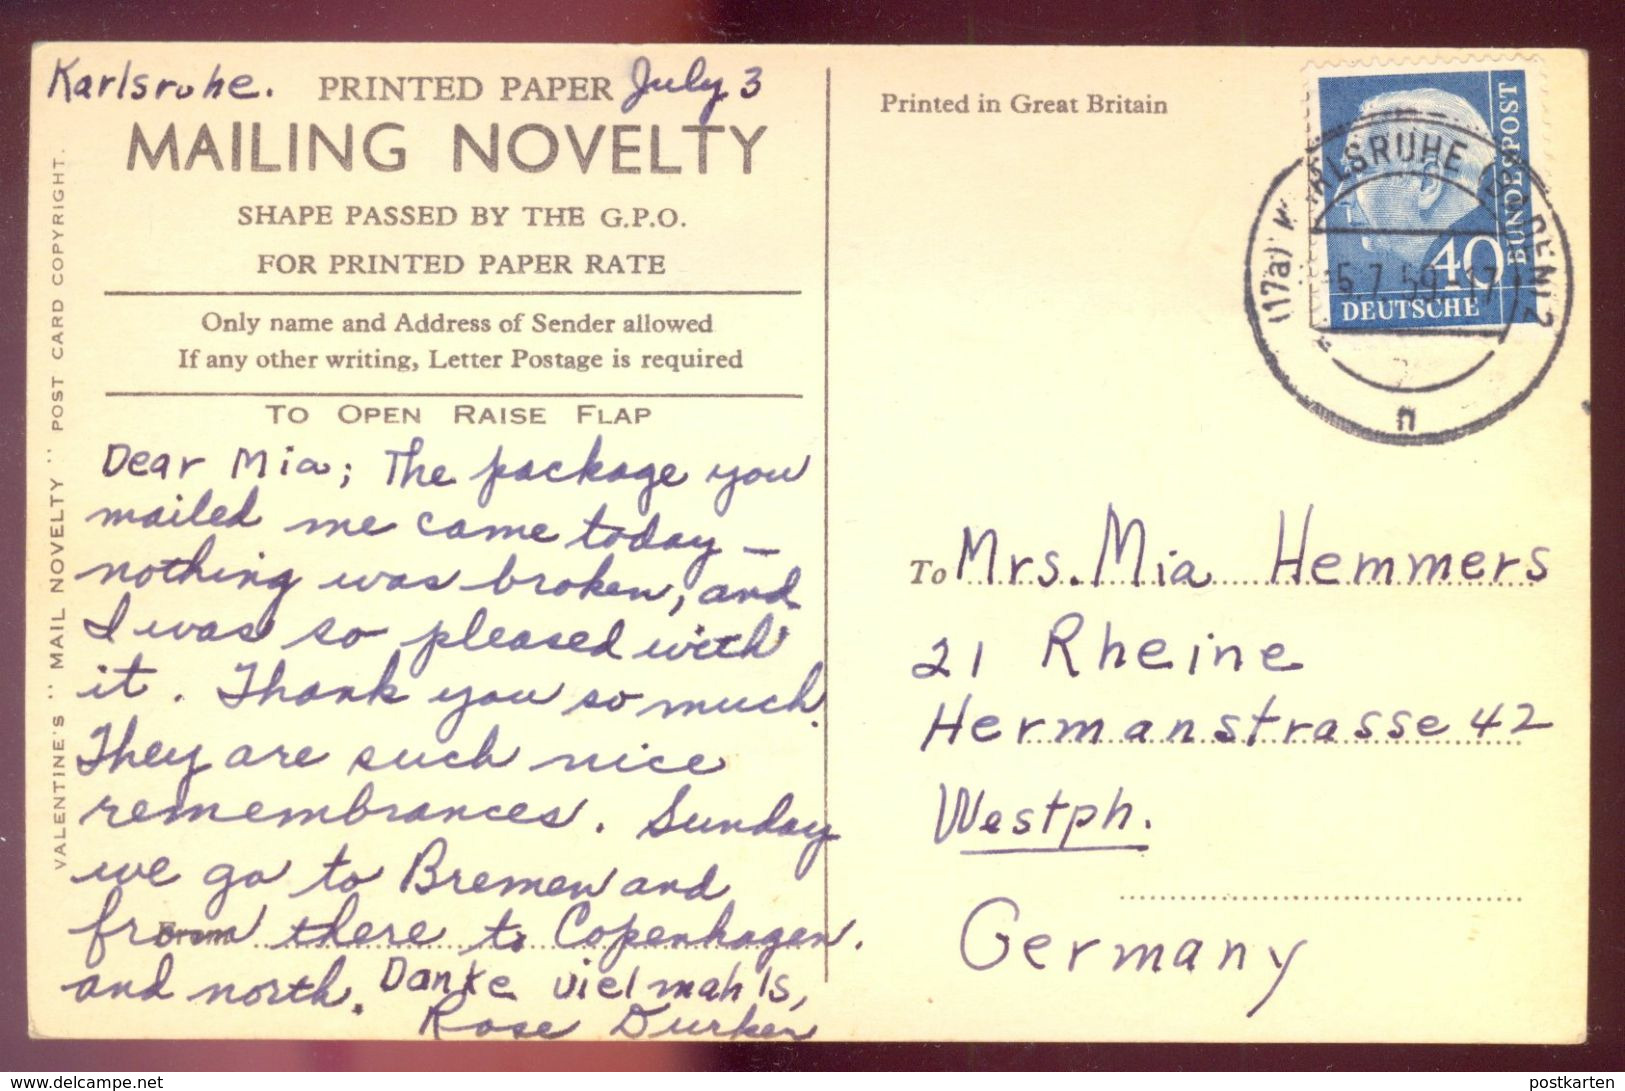 Karlsruhe. PRINTED PAPER July 3
MAILING NOVELTY
SHAPE PASSED BY THE G.P.O.
FOR PRINTED PAPER RATE
Only name and Address of Sender allowed
If any other writing, Letter Postage is required
TO OPEN RAISE FLAP
Dear Mia; The package you
mailed me came today —
nothing was broken, and
I was so pleased with
it. Thank you so much.
They are such nice
remembrances. Sunday
we go to Bremen and
From
from there to Copenhagen.
and north. Danke viel mahls,
Rose Durken
VALENTINE'S "MAIL NOVELTY" POST CARD COPYRIGHT.
Printed in Great Britain
DEUTSCHE
BUNDESPOST
40
(17a) KARLSRUHE
-5.7.59-17
n
To Mrs. Mia Hemmers
21 Rheine
Hermanstrasse 42
Westph.
Germany
www.delcampe.net
postkarten